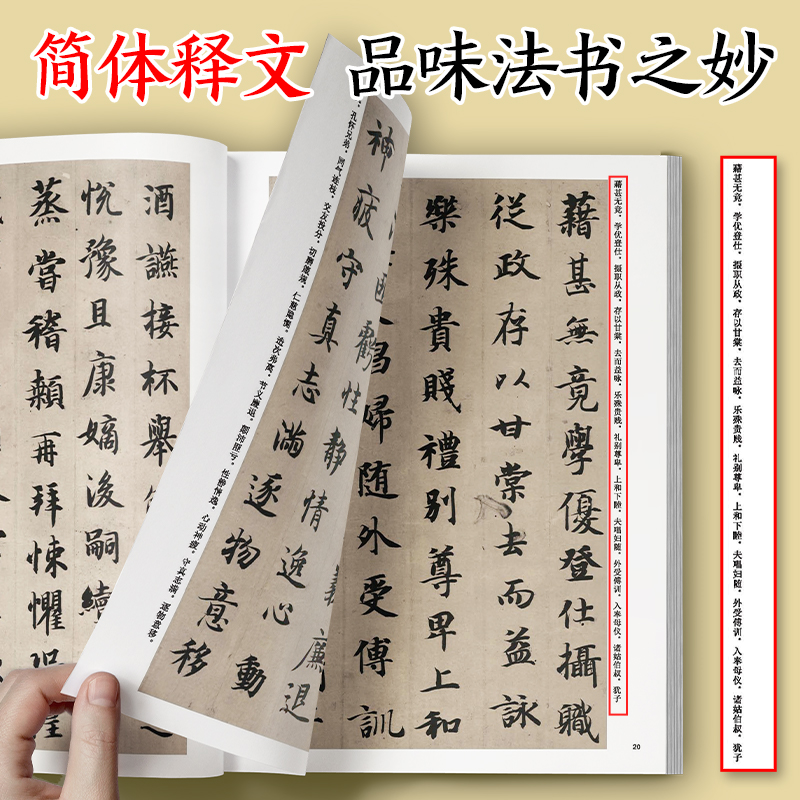 简体释文 品味法书之妙
藉甚无竟，学优登仕，摄职从政，存以甘棠，去而益咏，乐殊贵贱，礼别尊卑，上和下睦，夫唱妇随，外受傅训，入奉母仪，诸姑伯叔，犹子
藉甚無竟學優登仕攝職
從政存以甘棠去而益詠
樂殊貴賤禮別尊卑上和
婦随外受傅訓
20
廉退
匪虧性静情逸心動
神疲守真志滿逐物意移
孔怀兄弟，同气连枝，交友投分，切磨箴规，仁慈隐恻，造次弗离，节义廉退，颠沛匪亏，性静情逸，心动神疲，守真志满，逐物意移。
酒讌接杯舉
悦豫且康嫡後嗣續
蒸嘗稽顙再拜悚懼
藉甚无竟，学优登仕，摄职从政，存以甘棠，去而益咏，乐殊贵贱，礼别尊卑，上和下睦，夫唱妇随，外受傅训，入奉母仪，诸姑伯叔，犹子